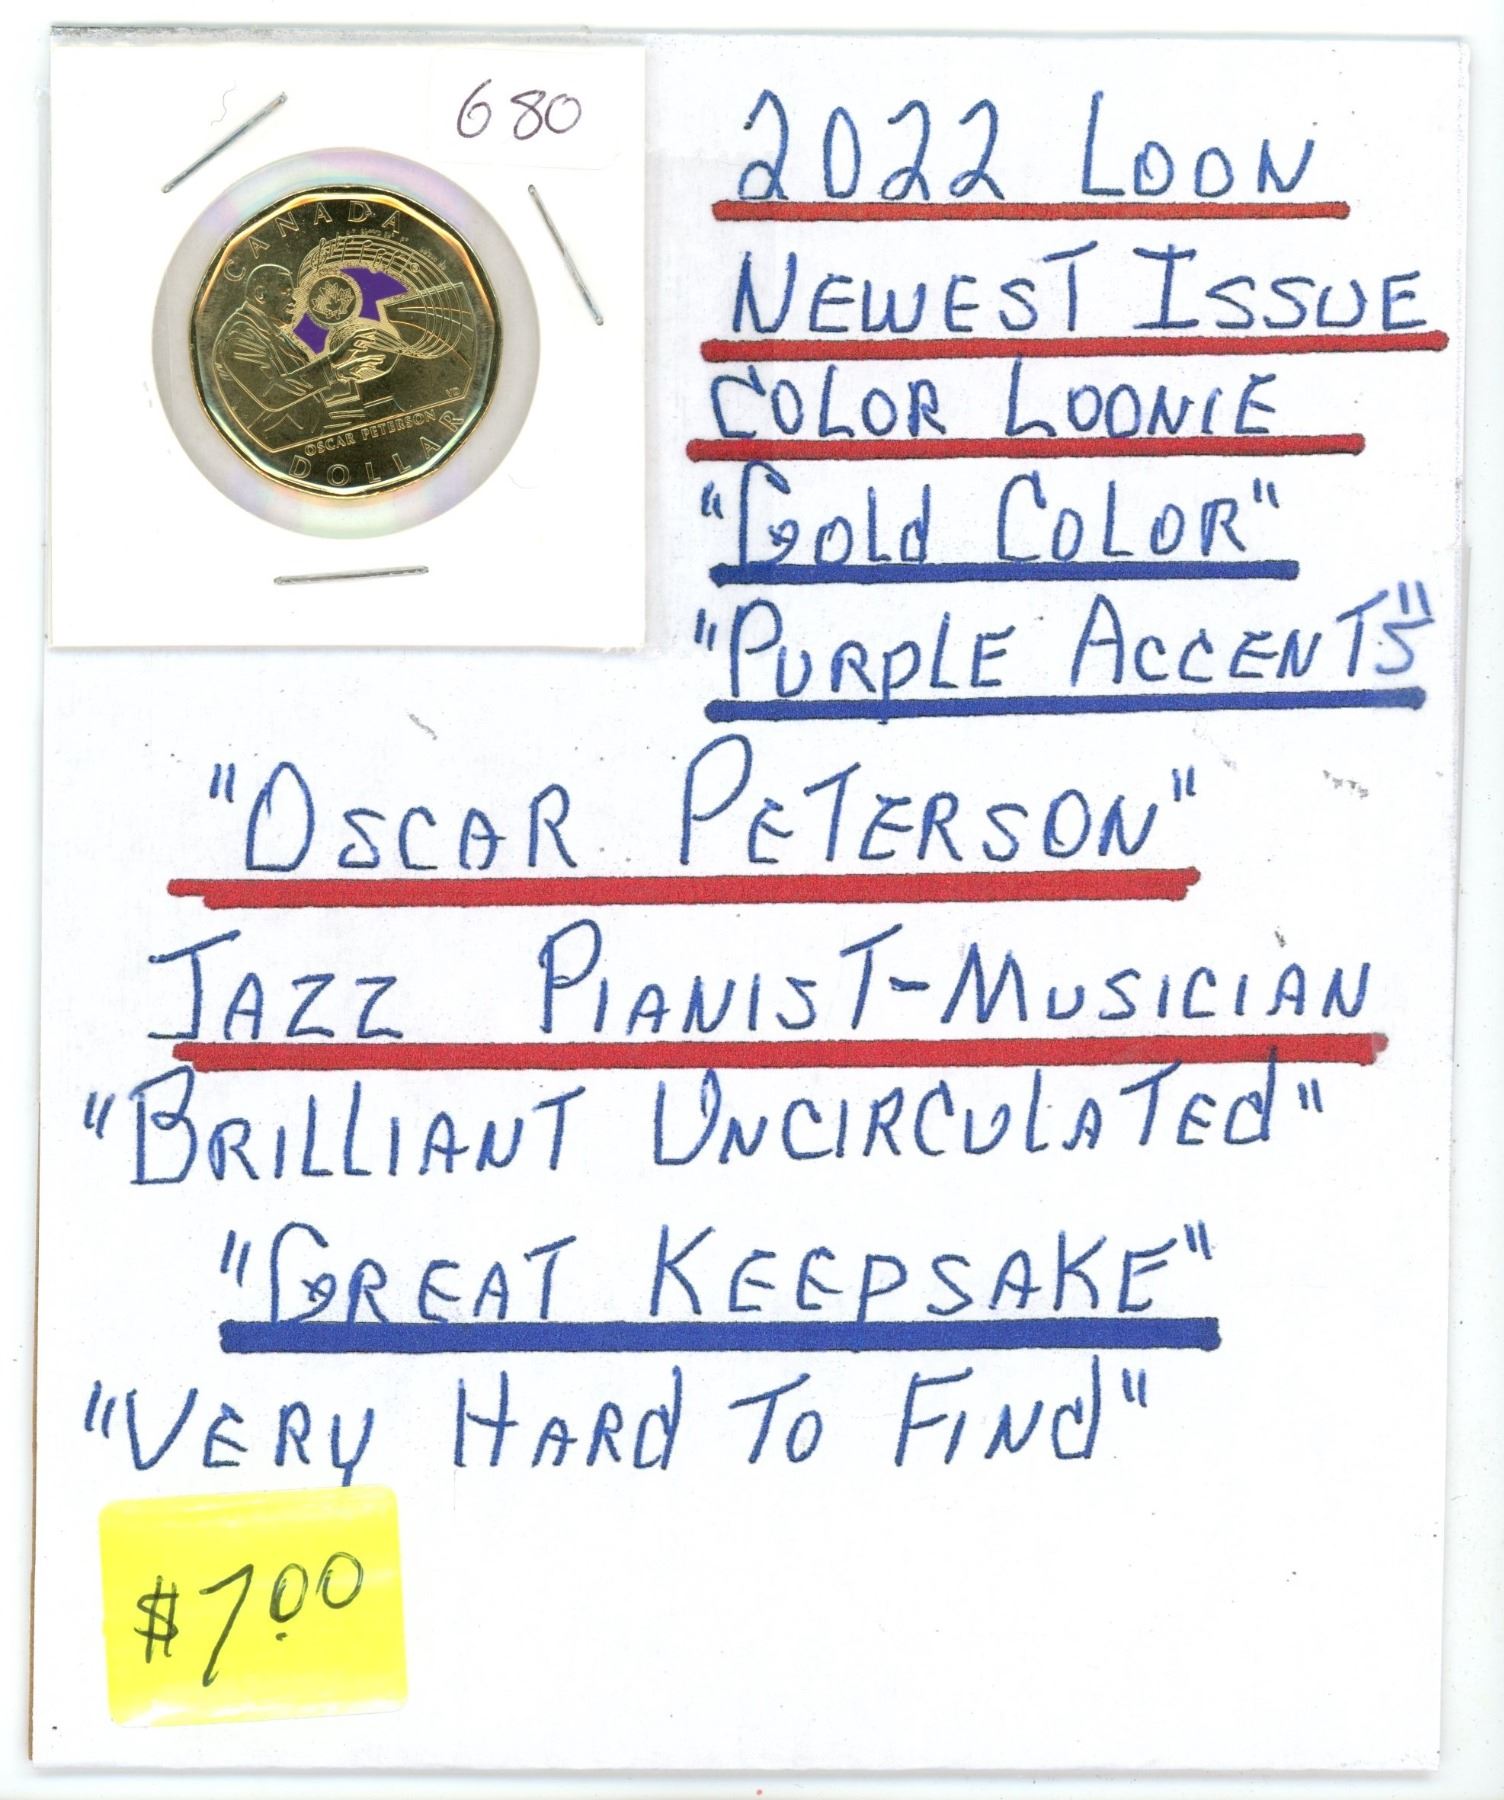 680
CANADA
OSCAR PETERSON
DOLLAR
2022 LOON
NEWEST ISSUE
COLOR LOONIE
"GOLd COLOR"
"PURPLE ACCENTS"
"OSCAR PETERSON"
JAZZ PIANIST-MUSICIAN
"BRILLIANT UNCIRCULATEd"
"GREAT KEEPSAKE"
"VERY HARd TO FINd"
$7.00